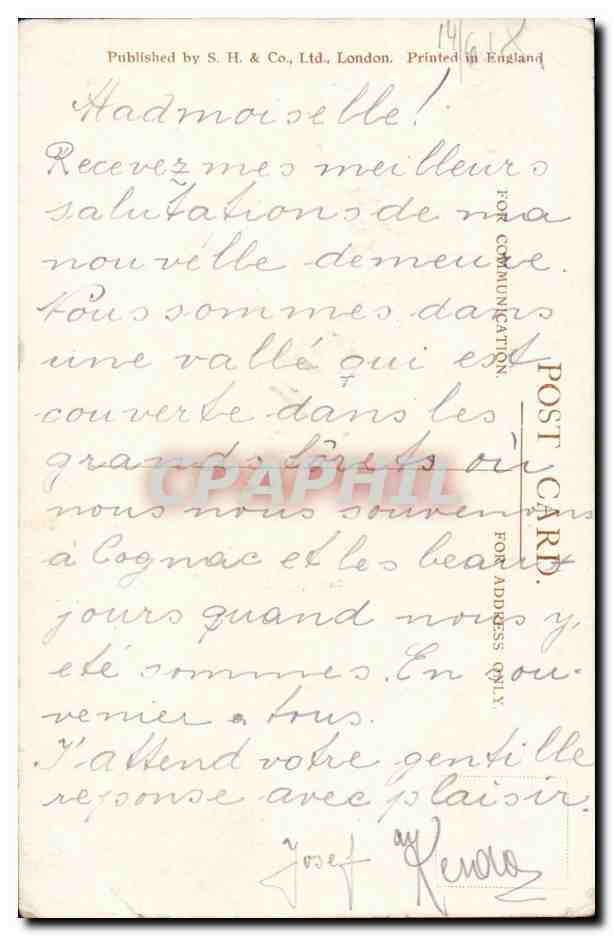 14/6 18
Published by S. H. & Co., Ltd., London. Printed in England
Madmoiselle!
Recevez mes meilleurs
salutations de ma
nouvélle demeure.
Nous sommes dans
une vallé qui est
couverte dans les
grands fôrets où
nous nous souvenons
à Cognac et les beaux
jours quand nous y,
eté sommes. En sou-
venier a tous.
J'attend votre gentille
reponse avec plaisir.
Josef
POST CARD.
FOR COMMUNICATION.
FOR ADDRESS ONLY.
CPAPHIL